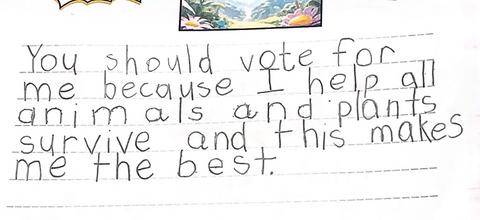 You should vote for
me because I help all
animals and plants
survive and this makes
me the best.